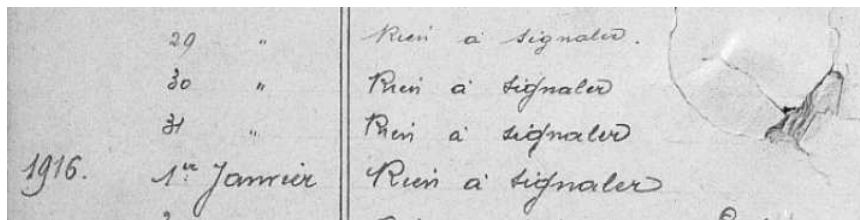 29 " Rien à signaler.
30 " Rien à signaler
31 " Rien à signaler
1916. 1er Janvier Rien à signaler